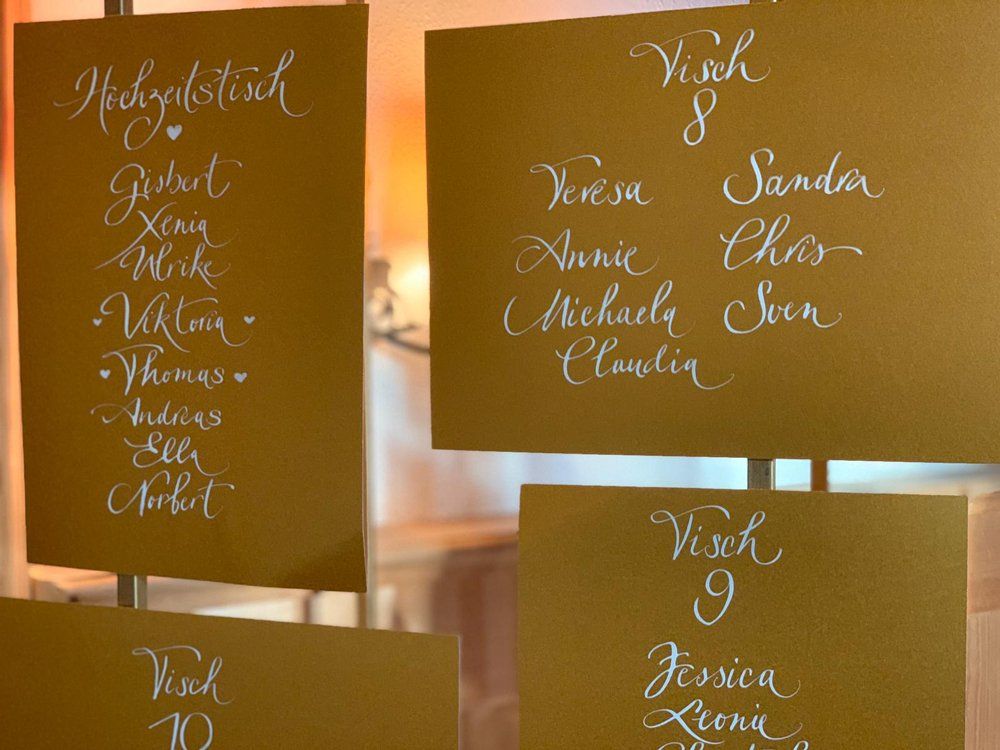 Hochzeitstisch
Gisbert
Xenia
Ulrike
Viktoria
Thomas
Andreas
Ella
Norbert
Tisch
8
Teresa Sandra
Annie Chris
Michaela Sven
Claudia
Tisch
9
Jessica
Leonie
Tisch
10